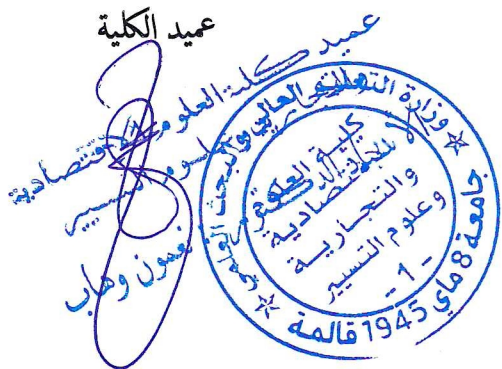 عميد الكلية
عميد كلية العلوم الاقتصادية
وعلوم التسيير
نعمون وهاب
وزارة التعليم العالي والبحث العلمي
جامعة 8 ماي 1945 قالمة
كلية العلوم
الاقتصادية
والتجارية
وعلوم التسيير
- 1 -